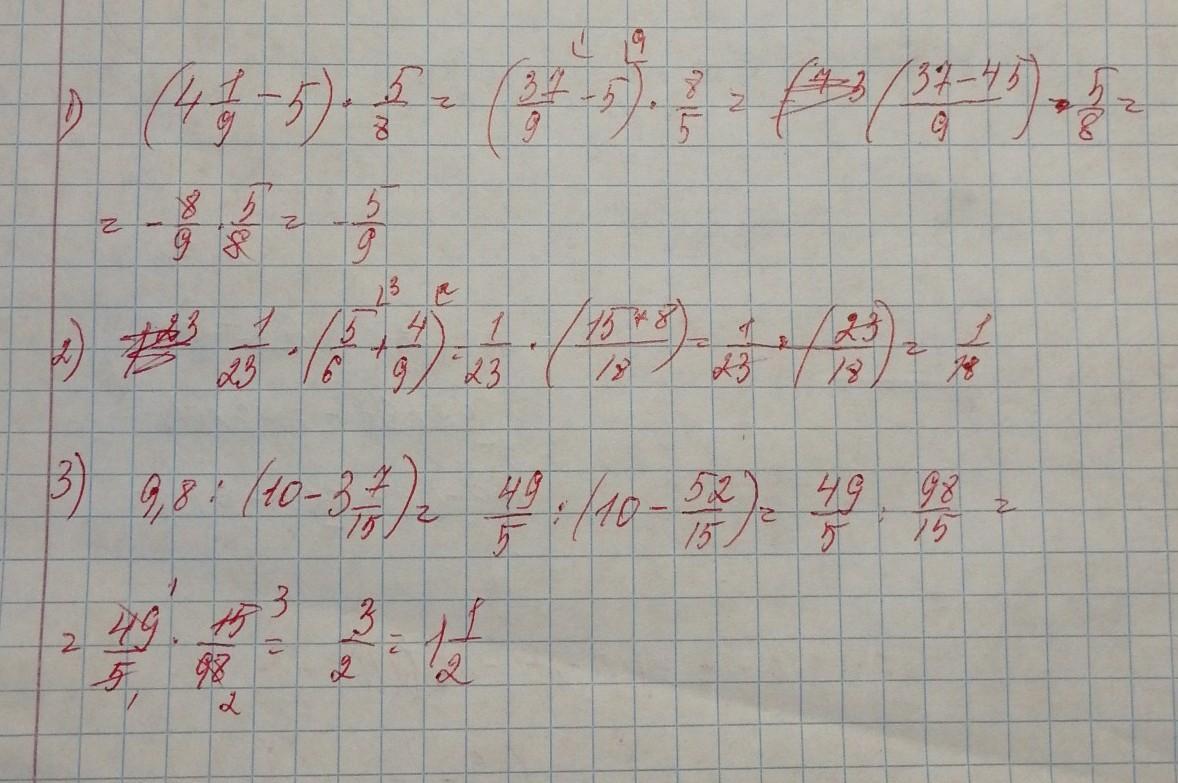 1) (4 1/9 - 5) · 5/8 = (37/9 - 5) · 8/5 = ((37-45)/9) · 5/8 =
= - 8/9 · 5/8 = - 5/9
2) 1/23 · (5/6 + 4/9) = 1/23 · ((15+8)/18) = 1/23 · (23/18) = 1/18
3) 9,8 : (10 - 3 7/15) = 49/5 : (10 - 52/15) = 49/5 : 98/15 =
= 49/5 · 15/98 = 3/2 = 1 1/2